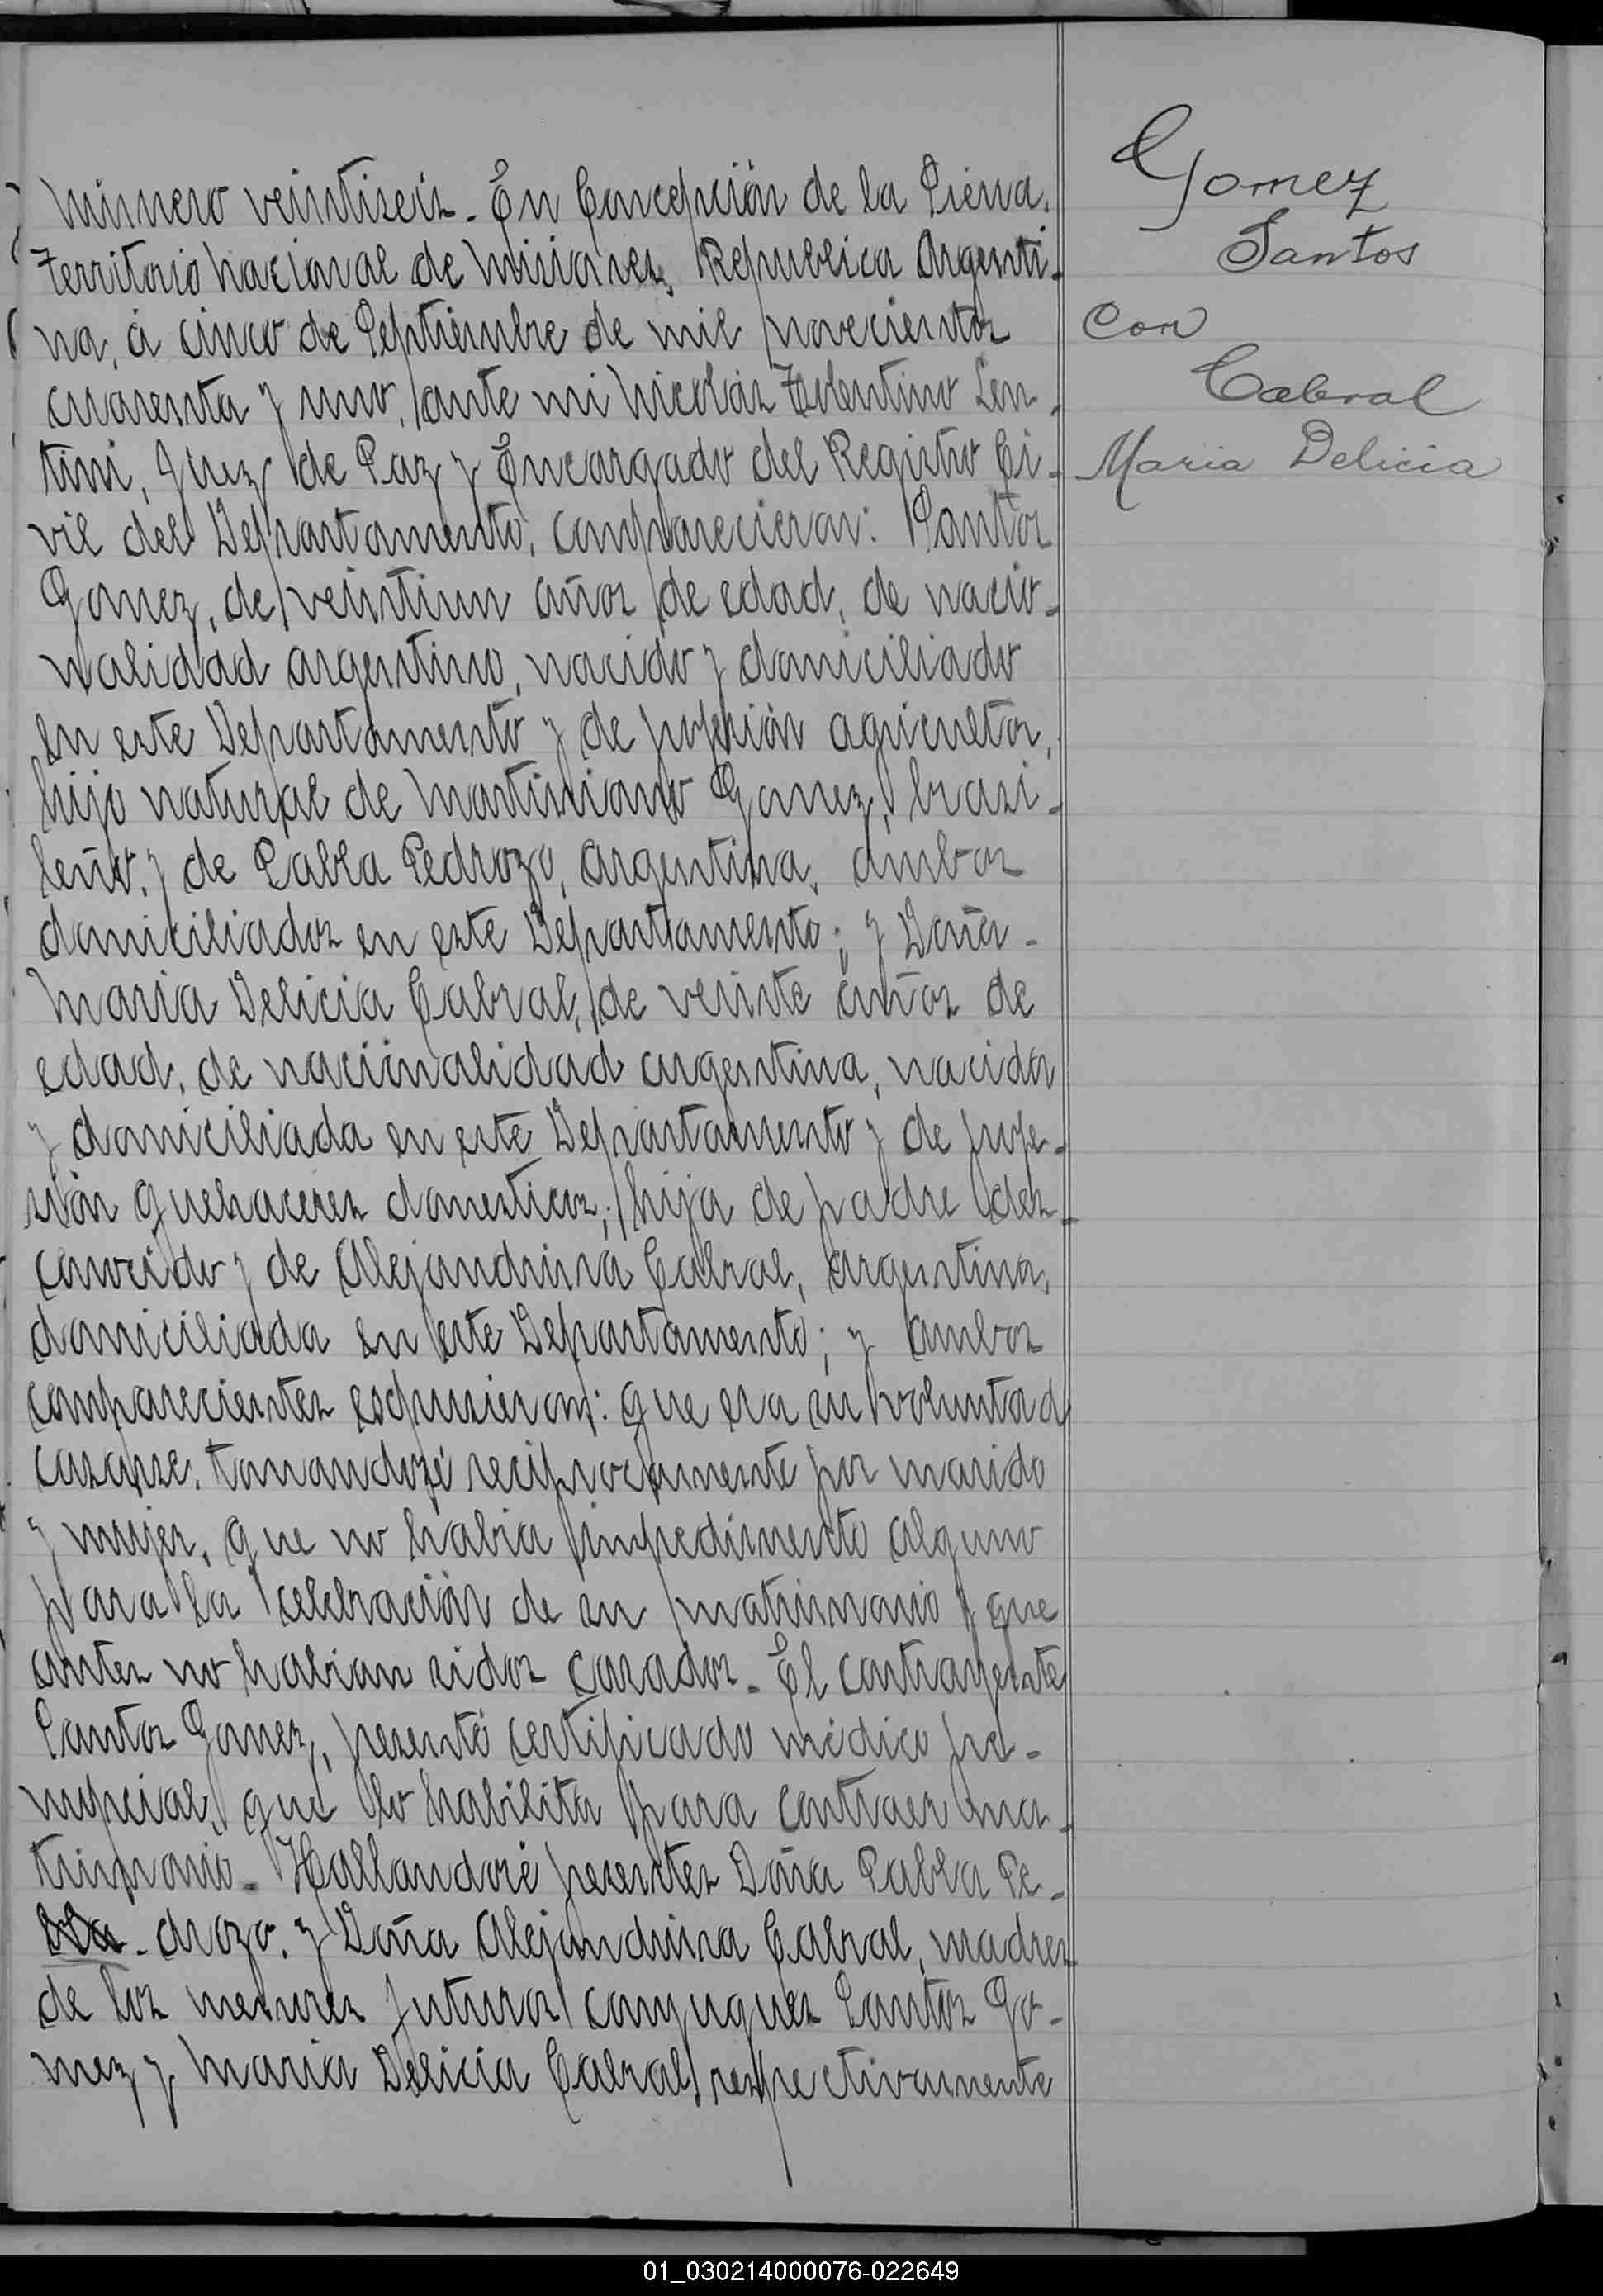 Número veintiseis. En Concepción de la Sierra,
Territorio Nacional de Misiones, Republica Argenti-
na, á cinco de Septiembre de mil novecientos
cuarenta y uno, ante mi Nicolás Tolentino Len-
tini, Juez de Paz y Encargado del Registro Ci-
vil del Departamento, comparecieron: Santos
Gomez, de veintiun años de edad, de nacio-
nalidad argentino, nacido y domiciliado
en este Departamento y de profesión agricultor,
hijo natural de Martiniano Gomez, brasi-
leño, y de Pabla Pedrozo, argentina, ambos
domiciliados en este Departamento; y Doña
Maria Delicia Cabral, de veinte años de
edad, de nacionalidad argentina, nacida
y domiciliada en este Departamento y de profe-
sión quehaceres domesticos, hija de padre des-
conocido y de Alejandrina Cabral, argentina,
domiciliada en este Departamento; y ambos
comparecientes espusieron: que era su voluntad
casarse, tomandosé reciprocamente por marido
y mujer, que no habia impedimento alguno
para la celebración de su matrimonio y que
antes no habian sidos casados. El contrayente
Santos Gomez, presentó certificado médico pre-
nupcial, que lo habilita para contraer ma-
trimonio. Hallandosé presentes Doña Pabla Pe-
drozo, y Doña Alejandrina Cabral, madres
de los menores futuros conyugues Santos Go-
mez y Maria Delicia Cabral respectivamente
Gomez
Santos
Con
Cabral
Maria Delicia
01_030214000076-022649